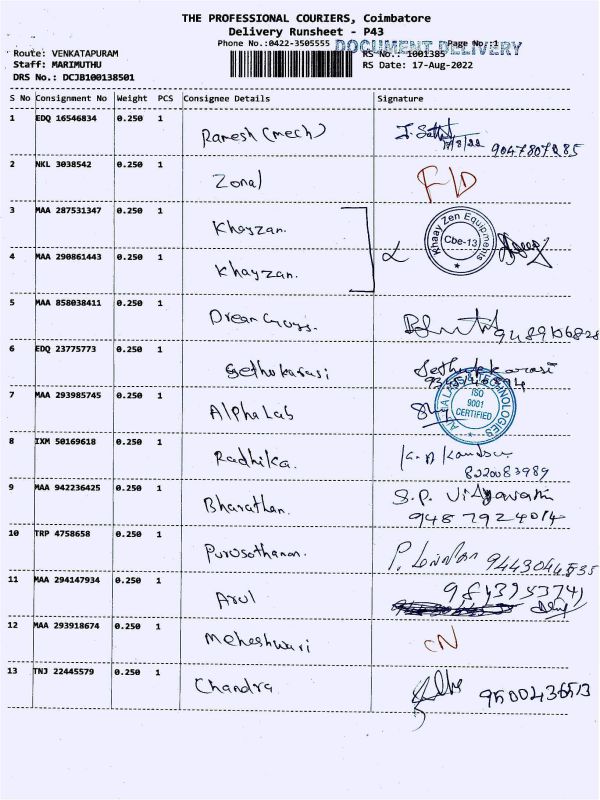 THE PROFESSIONAL COURIERS, Coimbatore
Delivery Runsheet - P43
Phone No.:0422-3505555 Page No: 1
DOCUMENT DELIVERY
Route: VENKATAPURAM RS No.: 1001385
Staff: MARIMUTHU RS Date: 17-Aug-2022
DRS No.: DCJB100138501
S No Consignment No Weight PCS Consignee Details Signature
1 EDQ 16546834 0.250 1 Ramesh (mech) 9047807285
2 NKL 3038542 0.250 1 Zonal F/D
3 MAA 287531347 0.250 1 Khayzan.
Khaay Zen Equipments
Cbe-13
4 MAA 290861443 0.250 1 Khayzan.
5 MAA 858038411 0.250 1
6 EDQ 23775773 0.250 1 Sethukarasi
7 MAA 293985745 0.250 1 Alpha Lab
ISO 9001 CERTIFIED
TECHNOLOGIES
8 IXM 50169618 0.250 1 Radhika.
8220083989
9 MAA 942236425 0.250 1 Bharathan. S.P.
9487924014
10 TRP 4758658 0.250 1 Purusothaman.
11 MAA 294147934 0.250 1 Arul
12 MAA 293918674 0.250 1 Meheshwari CN
13 TNJ 22445579 0.250 1 Chandra